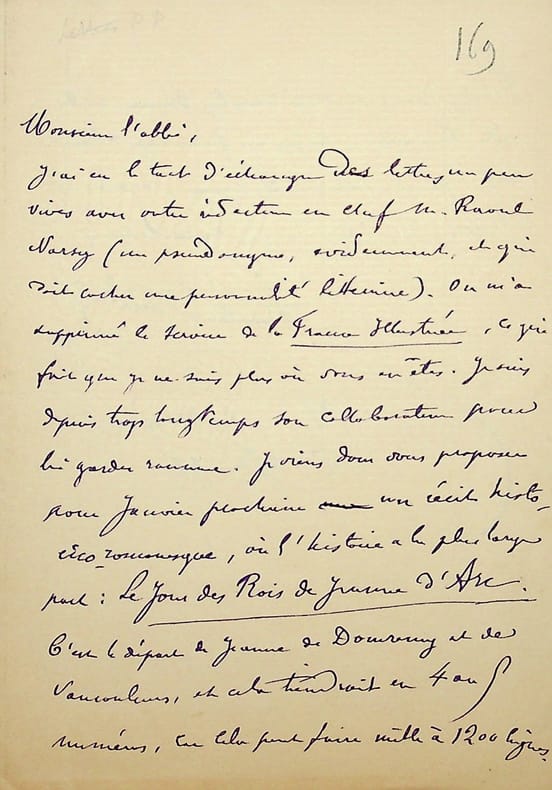 169
Monsieur l'abbé,
J'ai eu le tort d'échanger des lettres un peu
vives avec votre rédacteur en chef M. Raoul
Narsy (un pseudonyme, évidemment, et qui
doit cacher une personnalité littéraire). On m'a
supprimé le service de la France Illustrée, ce qui
fait que je ne sais plus où vous en êtes. Je suis
depuis trop longtemps son collaborateur pour
lui garder rancune. Je viens donc vous proposer
pour Janvier prochain un récit histo-
rico-romanesque, où l'histoire a la plus large
part : Le Jour des Rois de Jeanne d'Arc.
C'est le départ de Jeanne de Domremy et de
Vaucouleurs, et cela tiendrait en 4 ou 5
numéros, car cela peut faire mille à 1200 lignes.